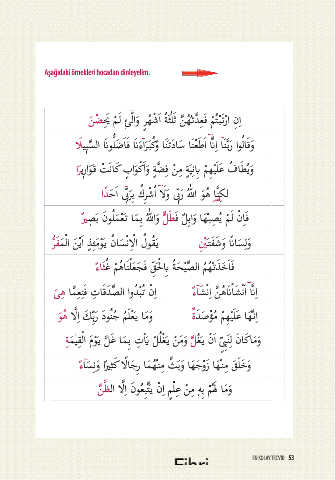 Aşağıdaki örnekleri hocadan dinleyelim.
اِنِ ارْتَبْتُمْ فَعِدَّتُهُنَّ ثَلٰثَةُ اَشْهُرٍ وَالّٰٓئ۪ لَمْ يَحِضْنَ
وَقَالُوا رَبَّنَٓا اِنَّٓا اَطَعْنَا سَادَتَنَا وَكُبَرَٓاءَنَا فَاَضَلُّونَا السَّب۪يلَا
وَيُطَافُ عَلَيْهِمْ بِاٰنِيَةٍ مِنْ فِضَّةٍ وَاَكْوَابٍ كَانَتْ قَوَار۪يرَا
لٰكِنَّا۬ هُوَ اللّٰهُ رَبّ۪ي وَلَٓا اُشْرِكُ بِرَبّ۪ٓي اَحَدًا
فَاِنْ لَمْ يُصِبْهَا وَابِلٌ فَطَلٌّ وَاللّٰهُ بِمَا تَعْمَلُونَ بَص۪يرٌ
وَلِسَانًا وَشَفَتَيْنِ يَقُولُ الْاِنْسَانُ يَوْمَئِذٍ اَيْنَ الْمَفَرُّ
فَاَخَذَتْهُمُ الصَّيْحَةُ بِالْحَقِّ فَجَعَلْنَاهُمْ غُثَٓاءً
اِنَّٓا اَنْشَأْنَاهُنَّ اِنْشَٓاءً اِنْ تُبْدُوا الصَّدَقَاتِ فَنِعِمَّا هِيَ
اِنَّهَا عَلَيْهِمْ مُؤْصَدَةٌ وَمَا يَعْلَمُ جُنُودَ رَبِّكَ اِلَّا هُوَ
وَمَا كَانَ لِنَبِيٍّ اَنْ يَغُلَّ وَمَنْ يَغْلُلْ يَأْتِ بِمَا غَلَّ يَوْمَ الْقِيٰمَةِ
وَخَلَقَ مِنْهَا زَوْجَهَا وَبَثَّ مِنْهُمَا رِجَالًا كَث۪يرًا وَنِسَٓاءً
وَمَا لَهُمْ بِه۪ مِنْ عِلْمٍ اِنْ يَتَّبِعُونَ اِلَّا الظَّنَّ
53